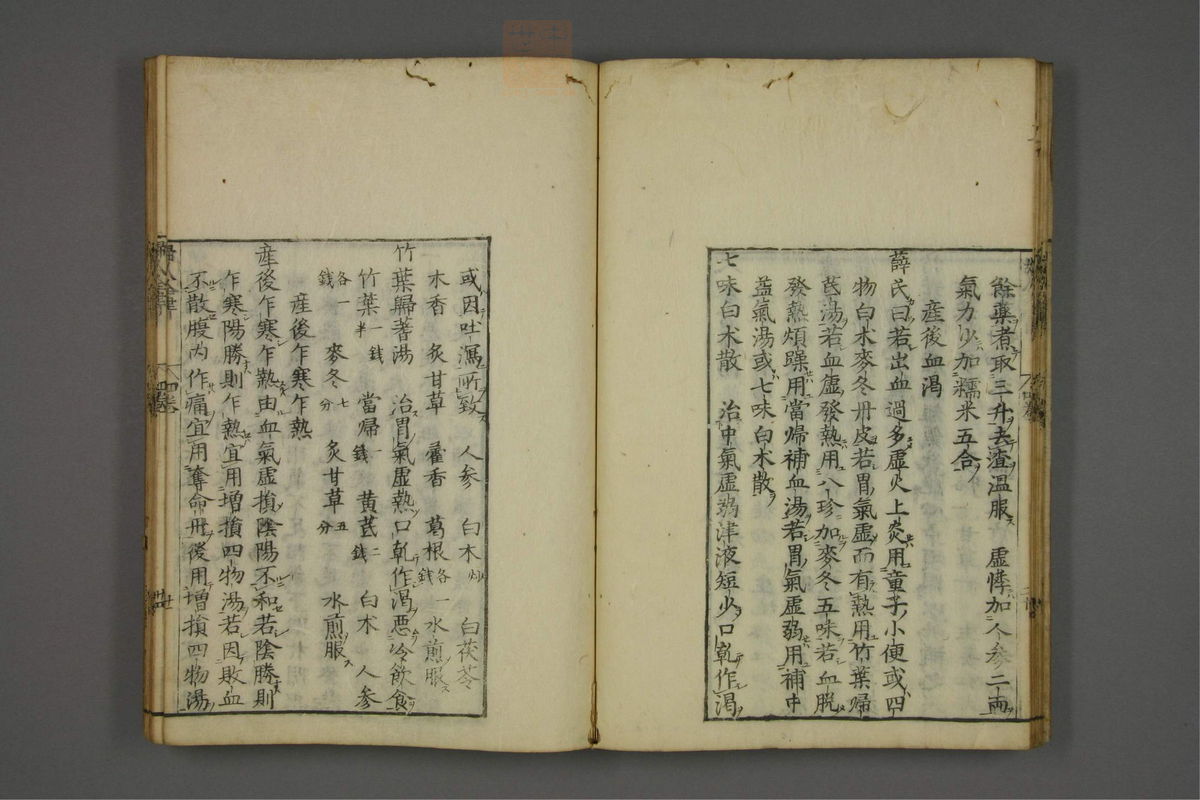 餘藥煮取三升去渣溫服　虛悸加人參二兩
氣力少加糯米五合
産後血渴
薛氏曰若出血過多虛火上炎用童子小便或四
物白朮麥冬丹皮若胃氣虛而有熱用竹葉歸
芪湯若血虛發熱用八珍加麥冬五味若血脫
發熱煩躁用當帰補血湯若胃氣虛弱用補中
益氣湯或七味白朮散
七味白朮散　治中氣虛弱津液短少口乾作渴
或因吐瀉所致　人參　白朮炒　白茯苓
木香　炙甘草　藿香　葛根各一錢　水煎服
竹葉歸蓍湯　治胃氣虛熱口乾作渴惡冷飲食
竹葉一錢半　當歸一錢　黃芪二錢　白朮　人參
各一錢　麥冬七分　炙甘草五分　水煎服
産後乍寒乍熱
産後乍寒乍熱由血氣虛損陰陽不和若陰勝則
乍寒陽勝則乍熱宜用增損四物湯若因敗血
不散腹內作痛宜用奪命丹後用增損四物湯
四卷